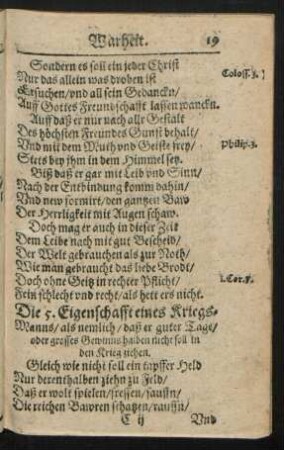 Warheit. 19
Sondern es soll ein jeder Christ
Nur das allein was droben ist Coloss. 3.
Ersuchen/ vnd all sein Gedancken/
Auff Gottes Freundschafft lassen wancken.
Auff daß er nur nach alle Gestalt
Des höchsten Freundes Gunst behalt/
Vnd mit dem Muth vnd Geiste frey/ Philip. 3.
Stets bey jhm in dem Himmel sey.
Biß daß er gar mit Leib vnd Sinn/
Nach der Entbindung komm dahin/
Vnd new formirt/ den gantzen Baw
Der Herrligkeit mit Augen schaw.
Doch mag er auch in dieser Zeit
Dem Leibe nach mit gut Bescheid/
Der Welt gebrauchen als zur Noth/
Wie man gebraucht das liebe Brodt/
Doch ohne Geitz in rechter Pflicht/ 1. Cor. 7.
Fein schlecht vnd recht/ als hett ers nicht.
Die 5. Eigenschafft eines Kriegs-
Manns/ als nemlich/ daß er guter Tage/
oder grosses Gewinns halben nicht soll in
den Krieg ziehen.
Gleich wie nicht soll ein tapffer Held
Nur derenthalben ziehn zu Feld/
Daß er wolt spielen/ fressen/ sauffn/
Die reichen Bawren schatzen/ rauffn/
C ij Vnd